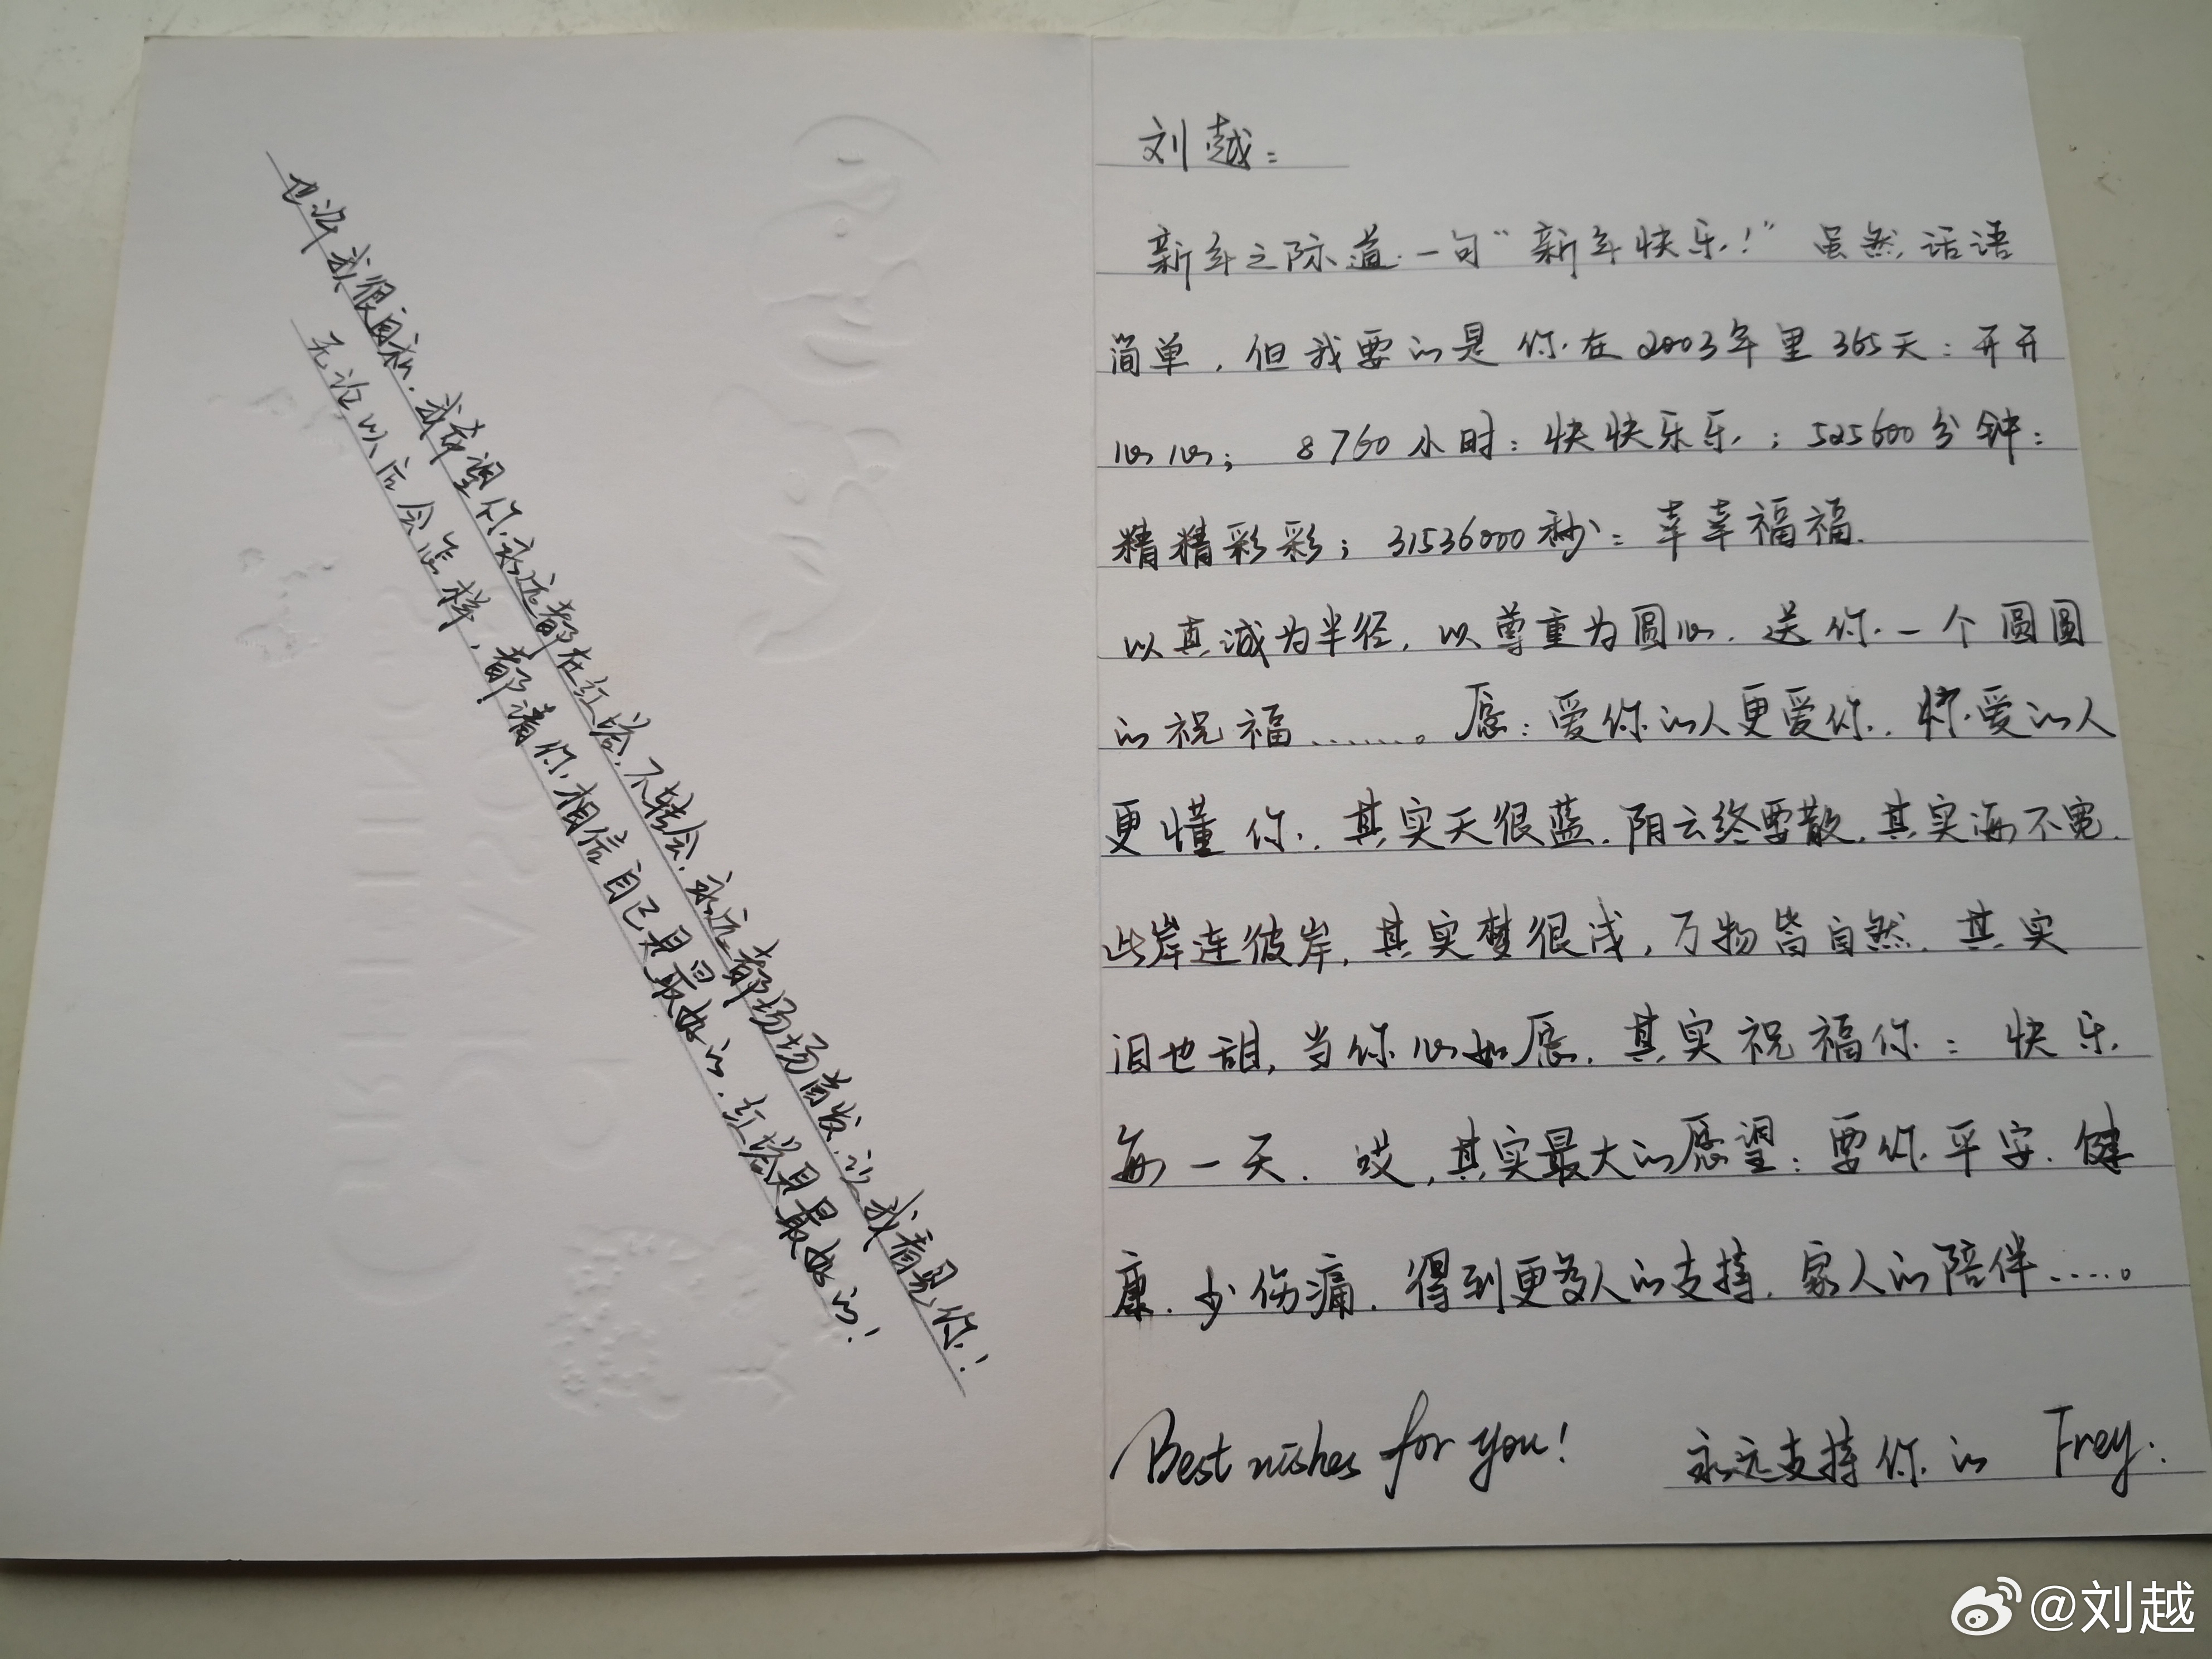 也许我很自私，我希望你永远都在红塔，不转会，永远都场场首发，让我看见你！
无论以后会怎样，都请你相信自己是最好的，红塔是最好的！
刘越：
新年之际道一句“新年快乐！”虽然话语
简单，但我要的是你在2003年里365天：开开
心心；8760小时：快快乐乐；525600分钟：
精精彩彩；31536000秒：幸幸福福.
以真诚为半径，以尊重为圆心.送你一个圆圆
的祝福……。愿：爱你的人更爱你.你爱的人
更懂你.其实天很蓝.阴云终要散.其实海不宽.
此岸连彼岸.其实梦很浅，万物皆自然.其实
泪也甜，当你心如愿.其实祝福你：快乐
每一天.哎，其实最大的愿望：要你平安.健
康.少伤痛.得到更多人的支持.家人的陪伴……。
Best wishes for you! 永远支持你的 Frey.
@刘越